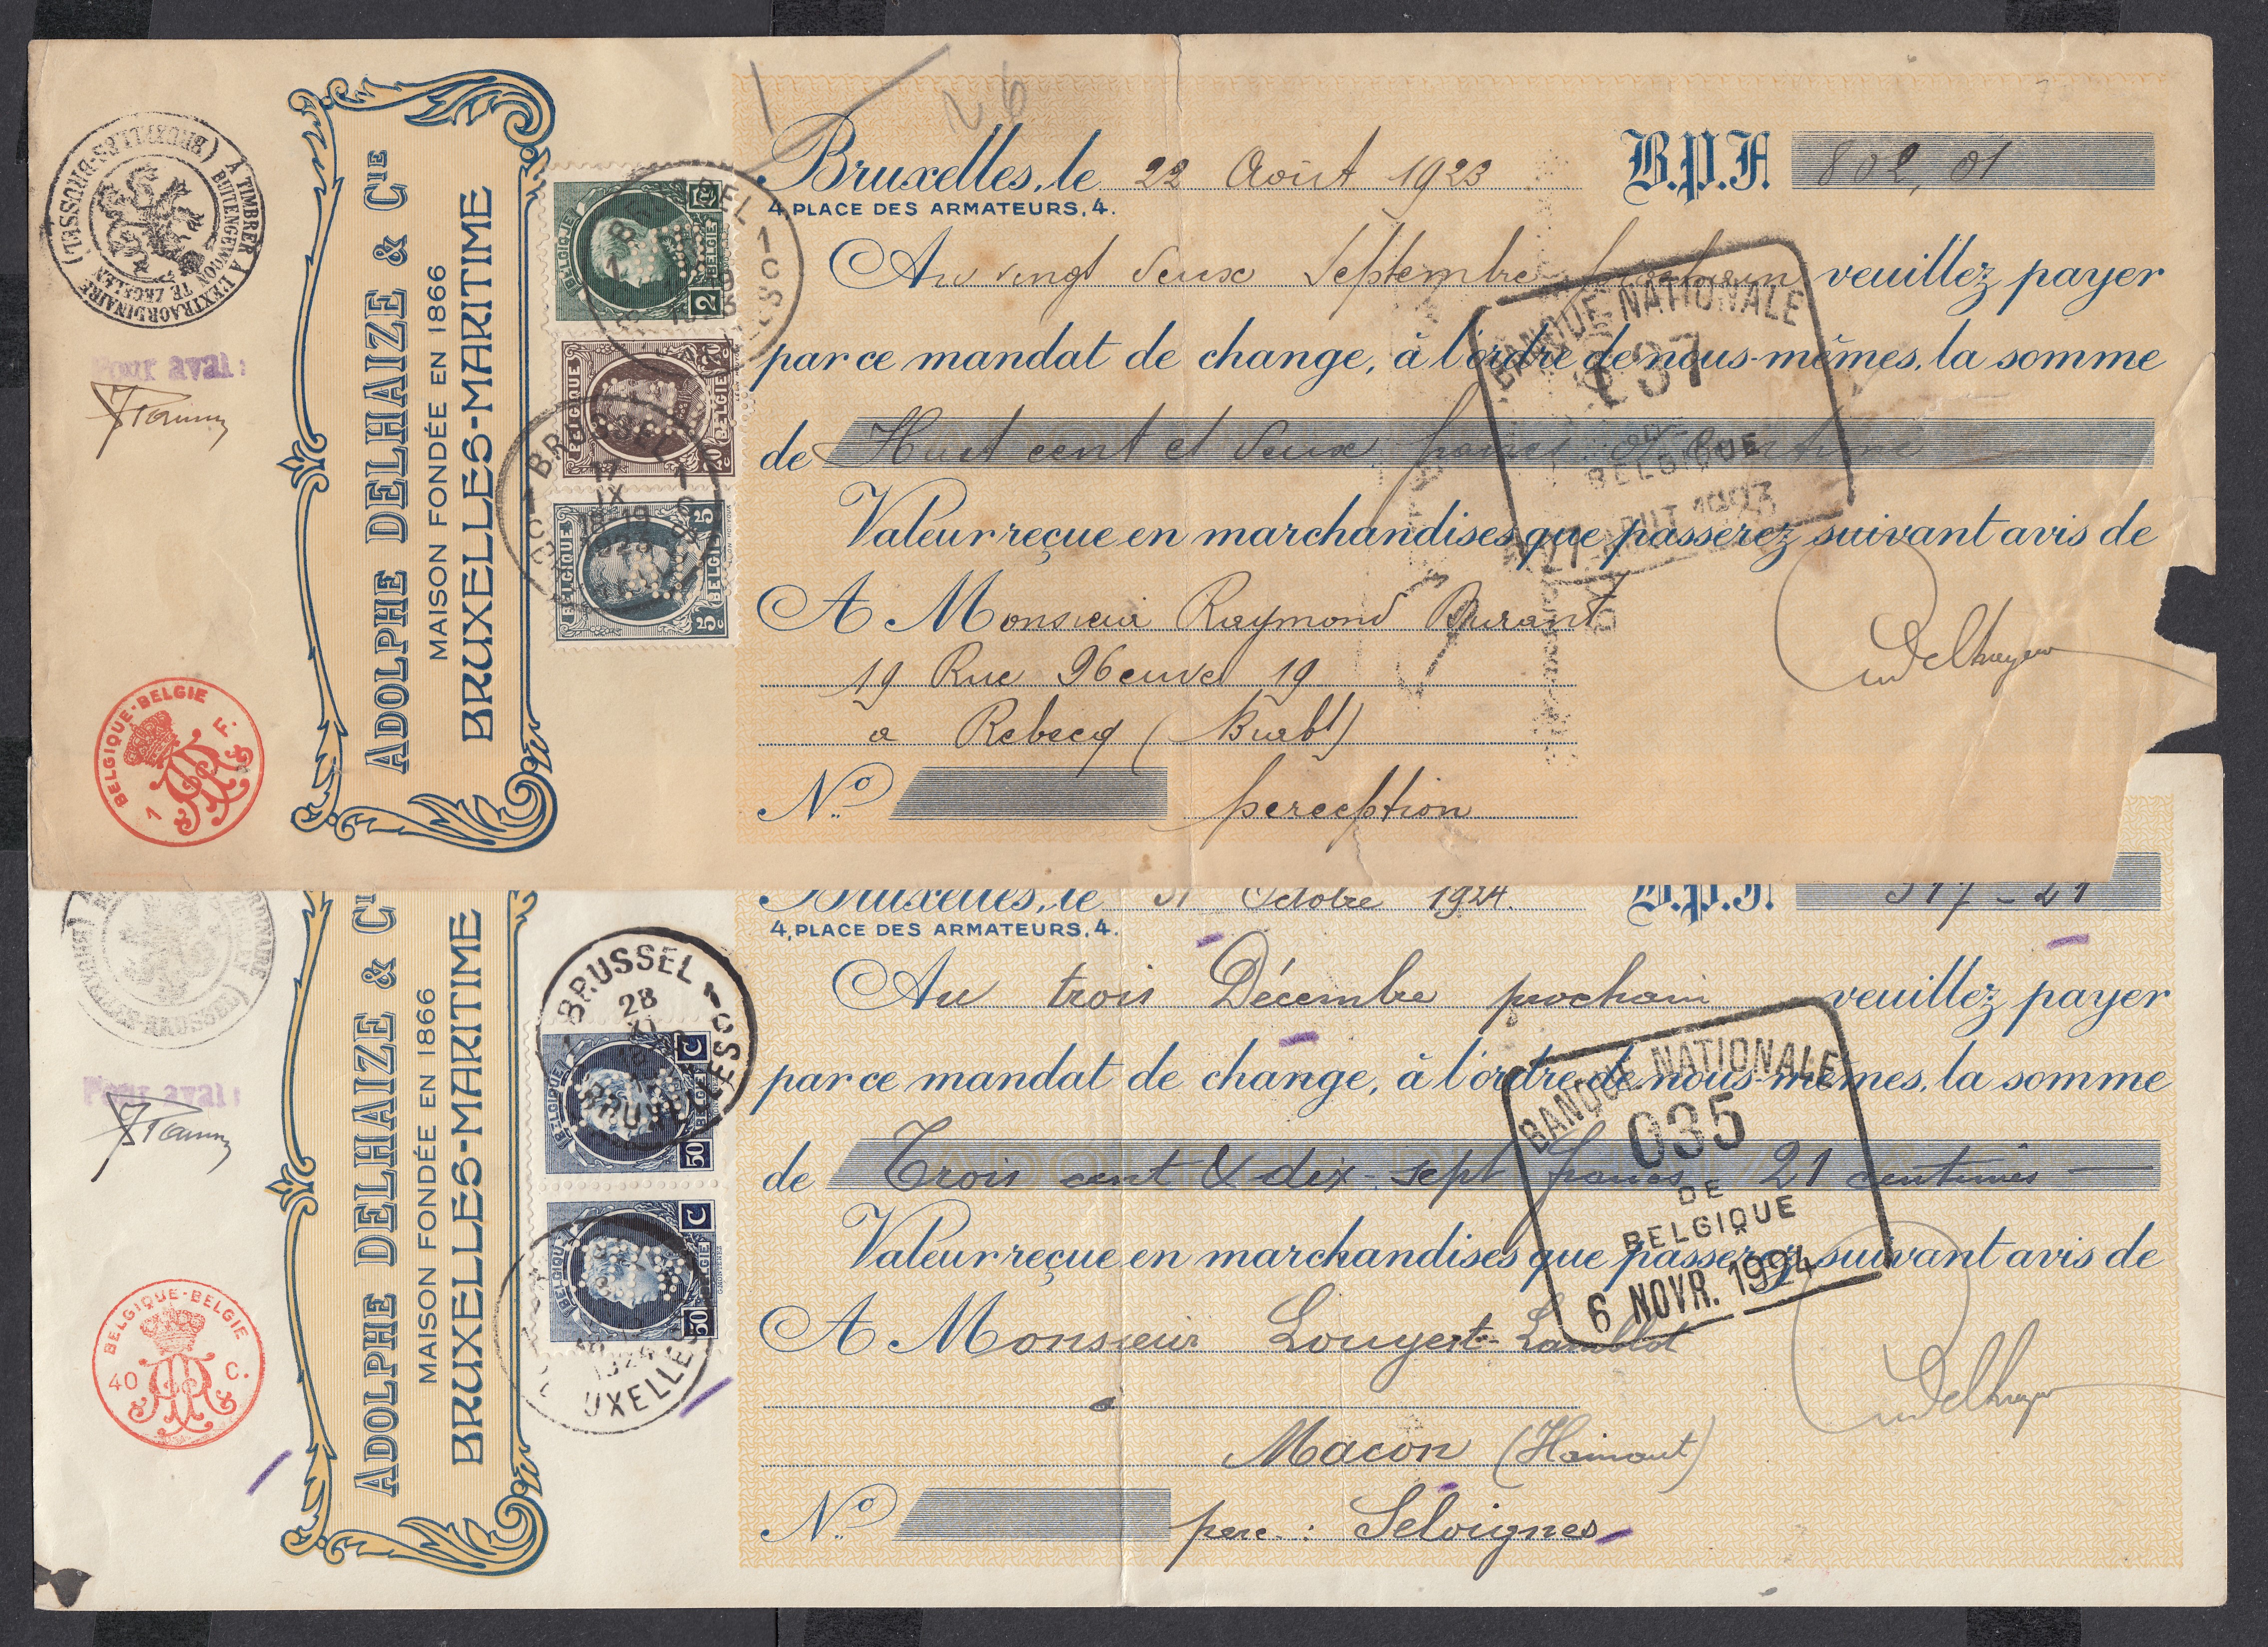 (BRUXELLES-BRUSSEL)
A TIMBRER A L'EXTRAORDINAIRE
BUITENGEWOON TE ZEGELEN
Pour aval:
BELGIQUE-BELGIE
1 F.
ADOLPHE DELHAIZE & CIE
MAISON FONDÉE EN 1866
BRUXELLES-MARITIME
BELGIQUE
BELGIË
2
BELGIQUE
BELGIË
BELGIQUE
BELGIË
5 5
BRUSSEL 1
BRUSSEL 1
IX
18-19
Bruxelles, le 22 Août 1923
4, PLACE DES ARMATEURS, 4.
B.P.F. 802,01
Au vingt deux Septembre prochain veuillez payer
par ce mandat de change, à l'ordre de nous-mêmes, la somme
de Huit cent et deux francs 01 centime
Valeur reçue en marchandises que passerez suivant avis de
A Monsieur Raymond Durant
19 Rue Neuve 19
a Rebecq (Brabt)
No perception
BANQUE NATIONALE
DE
BELGIQUE
AOUT 1923
Bruxelles, le 31 Octobre 1924.
4, PLACE DES ARMATEURS, 4.
B.P.F. 317-21
Au trois Décembre prochain veuillez payer
par ce mandat de change, à l'ordre de nous-mêmes, la somme
de Trois cent & dix-sept francs 21 centimes
Valeur reçue en marchandises que passerez suivant avis de
A Monsieur Louyest-Lamblot
à
Macon (Hainaut)
No perc.: Seloignes
BANQUE NATIONALE
035
DE
BELGIQUE
6 NOVR. 1924
Pour aval:
BELGIQUE-BELGIE
40 C.
ADOLPHE DELHAIZE & CIE
MAISON FONDÉE EN 1866
BRUXELLES-MARITIME
BRUSSEL 1
28
XI
BRUXELLES
BELGIQUE
BELGIË
50 C
BELGIQUE
BELGIË
50 C
1924
UXELLES